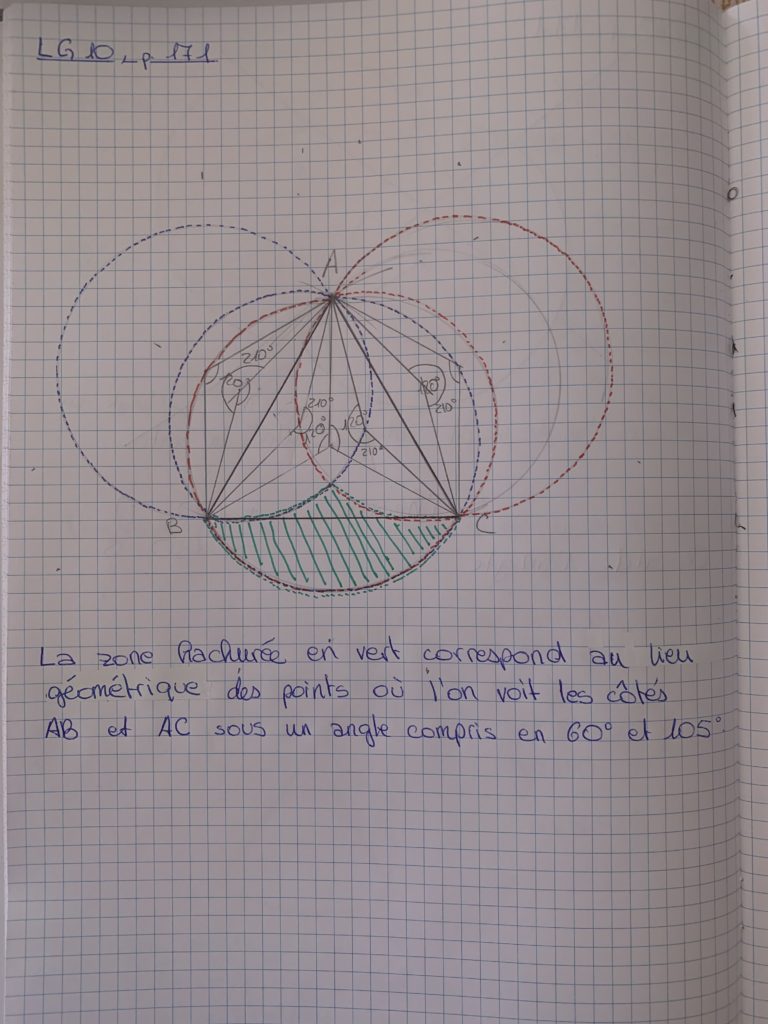 LG 10, p 171
A
210°
120°
120°
210°
210°
120°
120°
210°
B
C
La zone hachurée en vert correspond au lieu
géométrique des points où l'on voit les côtés
AB et AC sous un angle compris en 60° et 105°.